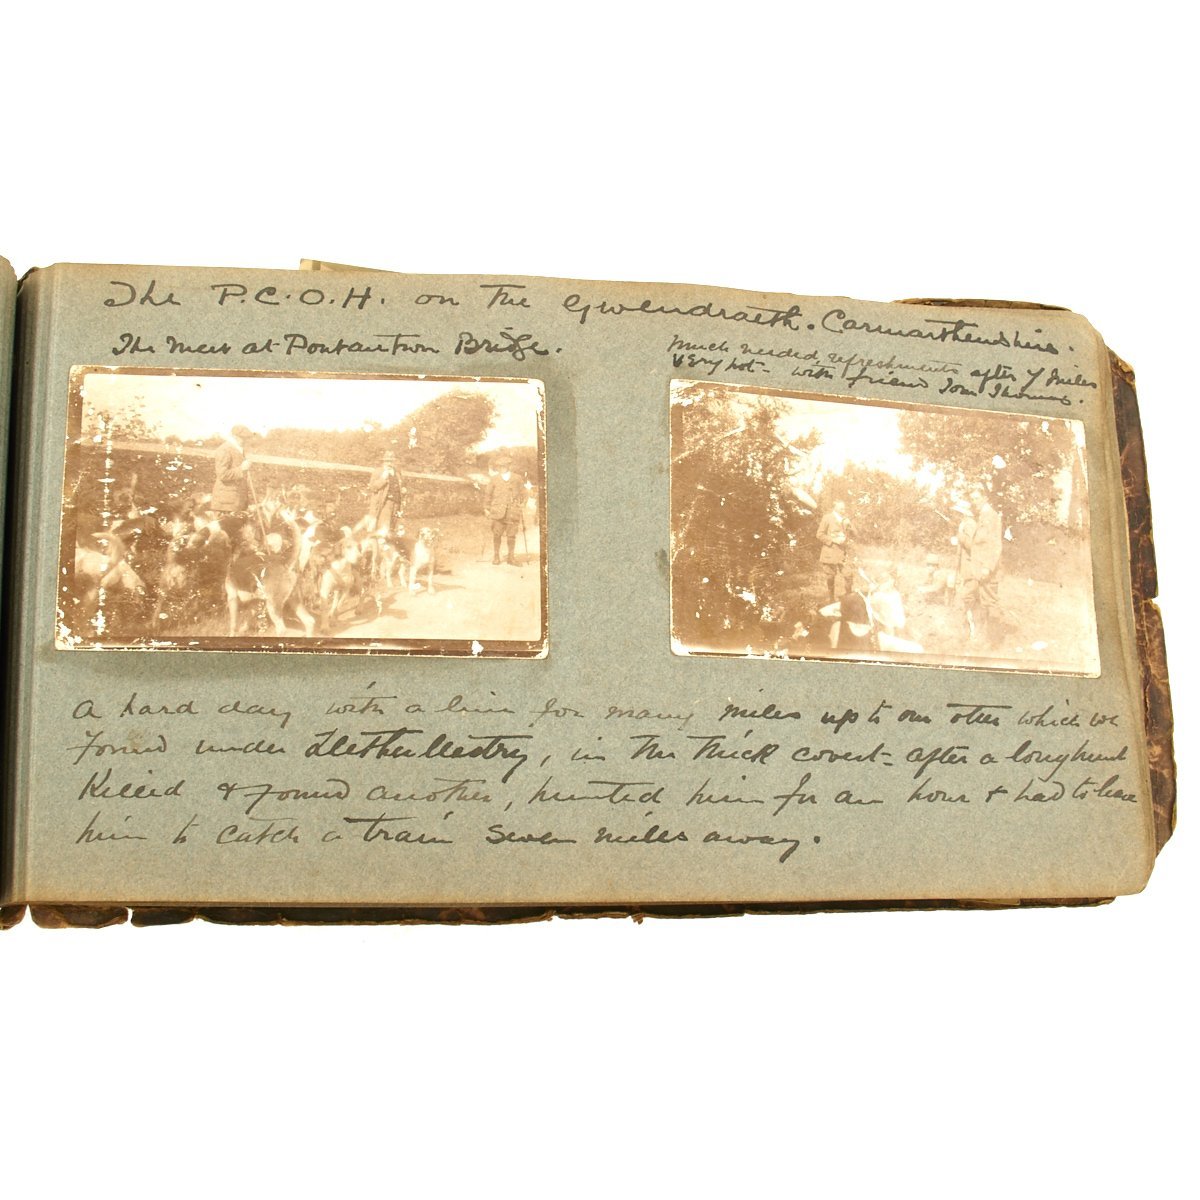 The P.C.O.H. on the Gwendraeth. Carmarthenshire.
The Meet at Pontantwn Bridge.
Much needed refreshments after 7 miles
very hot - with friend Tom Thomas.
A hard day with a line for many miles up to our otter which we
found under Llethrllestry, in the thick covert - after a long hunt
Killed & found another, hunted him for an hour & had to leave
him to catch a train seven miles away.